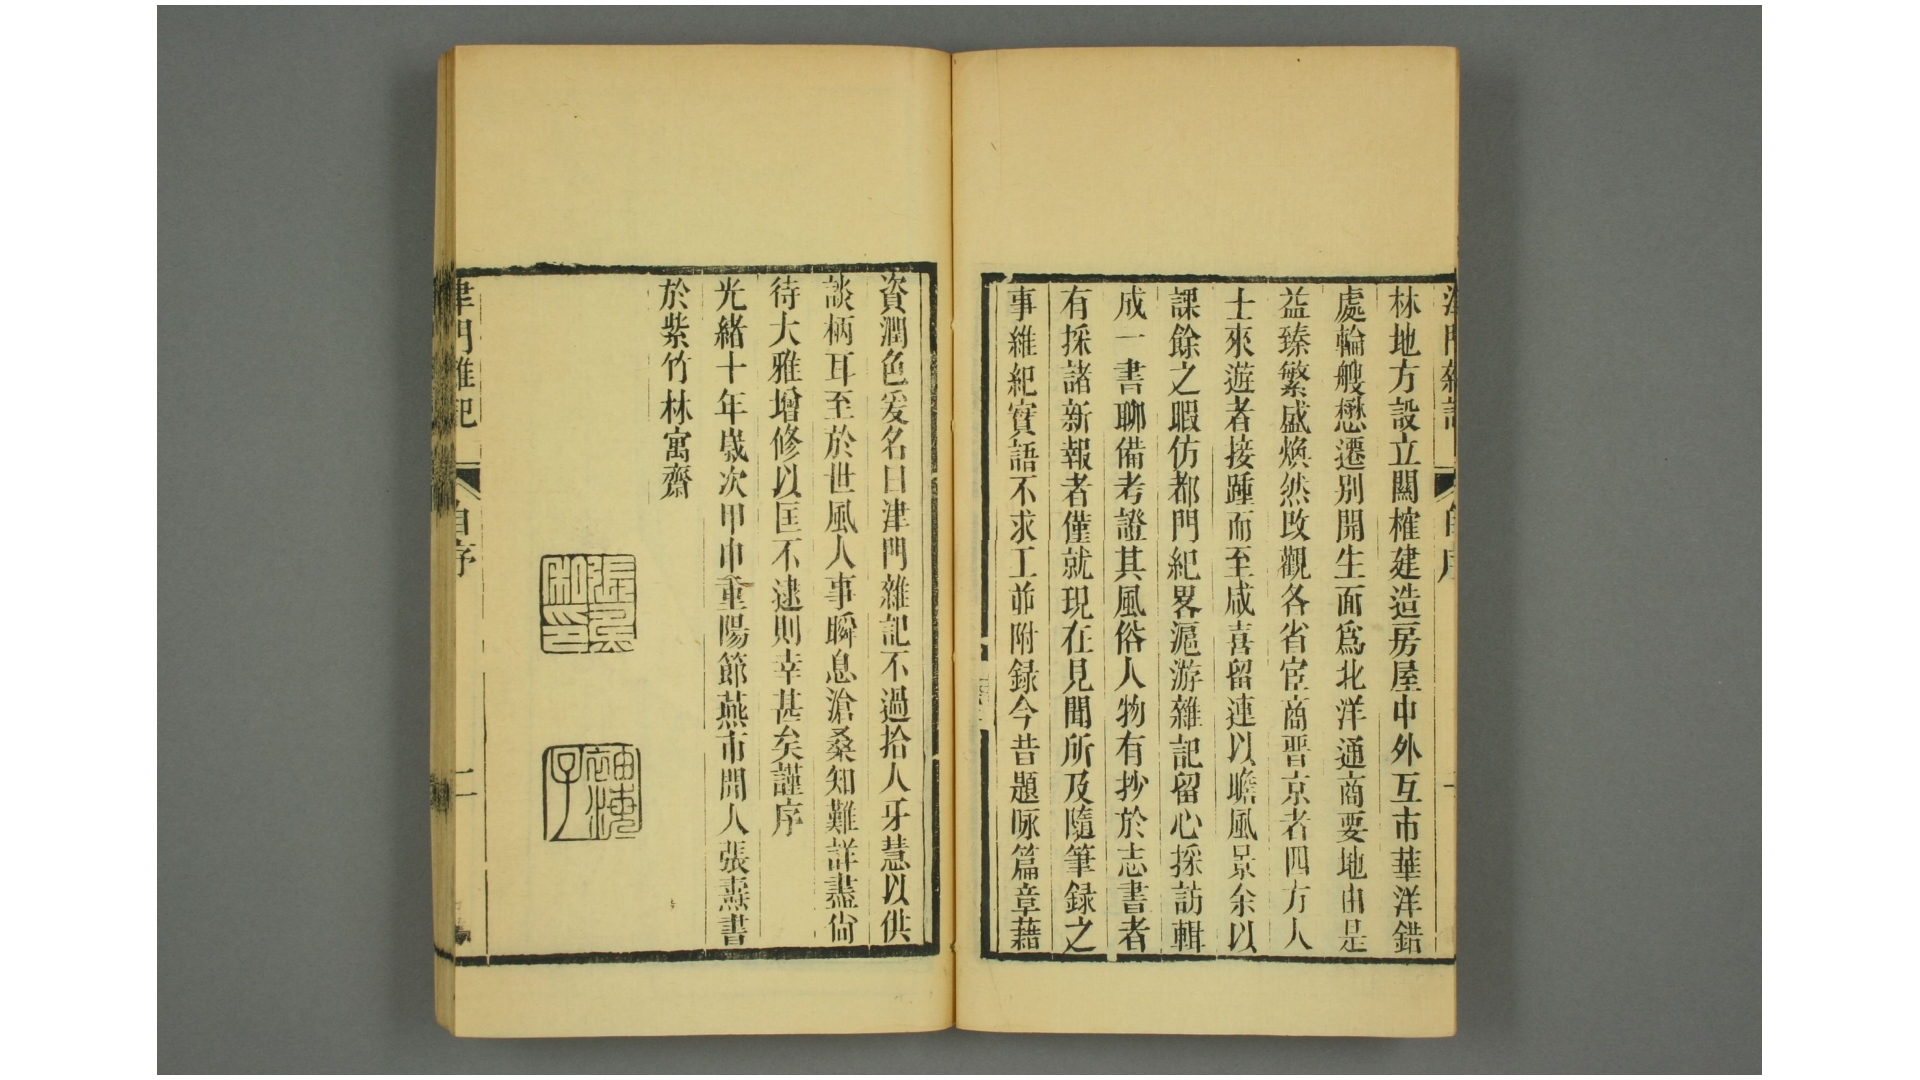 津門雜記
自序
林地方設立關榷建造房屋中外互市華洋錯
處輪艘懋遷別開生面爲北洋通商要地由是
益臻繁盛煥然改觀各省宦商晋京者四方人
士來遊者接踵而至咸喜留連以瞻風景余以
課餘之暇仿都門紀畧滬游雜記留心採訪輯
成一書聊備考證其風俗人物有抄於志書者
有採諸新報者僅就現在見聞所及隨筆錄之
事維紀實語不求工並附録今昔題咏篇章藉
資潤色爰名曰津門雜記不過拾人牙慧以供
談柄耳至於世風人事瞬息滄桑知難詳盡尙
待大雅增修以匡不逮則幸甚矣謹序
光緒十年歲次甲申重陽節燕市閒人張燾書
於紫竹林寓齋
張燾
私印
赤山
津門雜記
自序
二